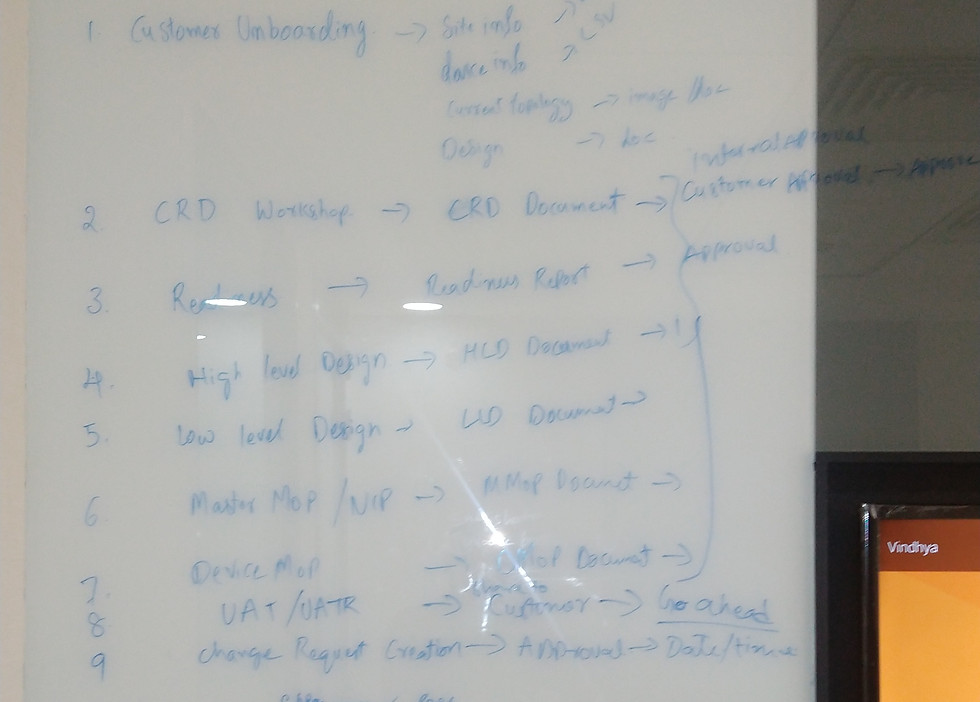 1. Customer Unboarding → Site info
device info
Current topology → image / doc
Design → doc
internal Approval
2. CRD Workshop → CRD Document → Customer Approval → Approve
3. Readiness → Readiness Report → Approval
4. High level Design → HLD Document →
5. Low level Design → LLD Document →
6 Master MOP / NIP → MMOP Document →
7. Device MOP → DMOP Document →
share to
8 UAT / UATR → Customer → Go ahead
9 Change Request Creation → Approval → Date/time
Vindhya